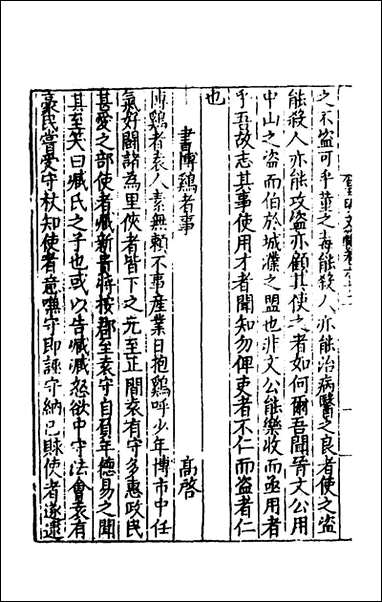 之不盗可乎堇之毒能殺人亦能治病醫之良者使之盗
能殺人亦能攻盗亦顧其使之者如何爾吾聞晉文公用
中山之盗而伯於城濮之盟也非文公能樂收而亟用者
乎吾故志其事使用才者聞知勿俾吏者不仁而盗者仁
也
書博鷄者事 高啓
博鷄者袁人素無賴不事産業日抱鷄呼少年博市中任
氣好鬪諸為里俠者皆下之元至正間袁有守多惠政民
甚愛之部使者臧新貴將按郡至袁守自負年德易之聞
其至笑曰臧氏之子也或以告臧臧怒欲中守法會袁有
豪民嘗受守杖知使者意嗛守即誣守納己賕使者遂逮